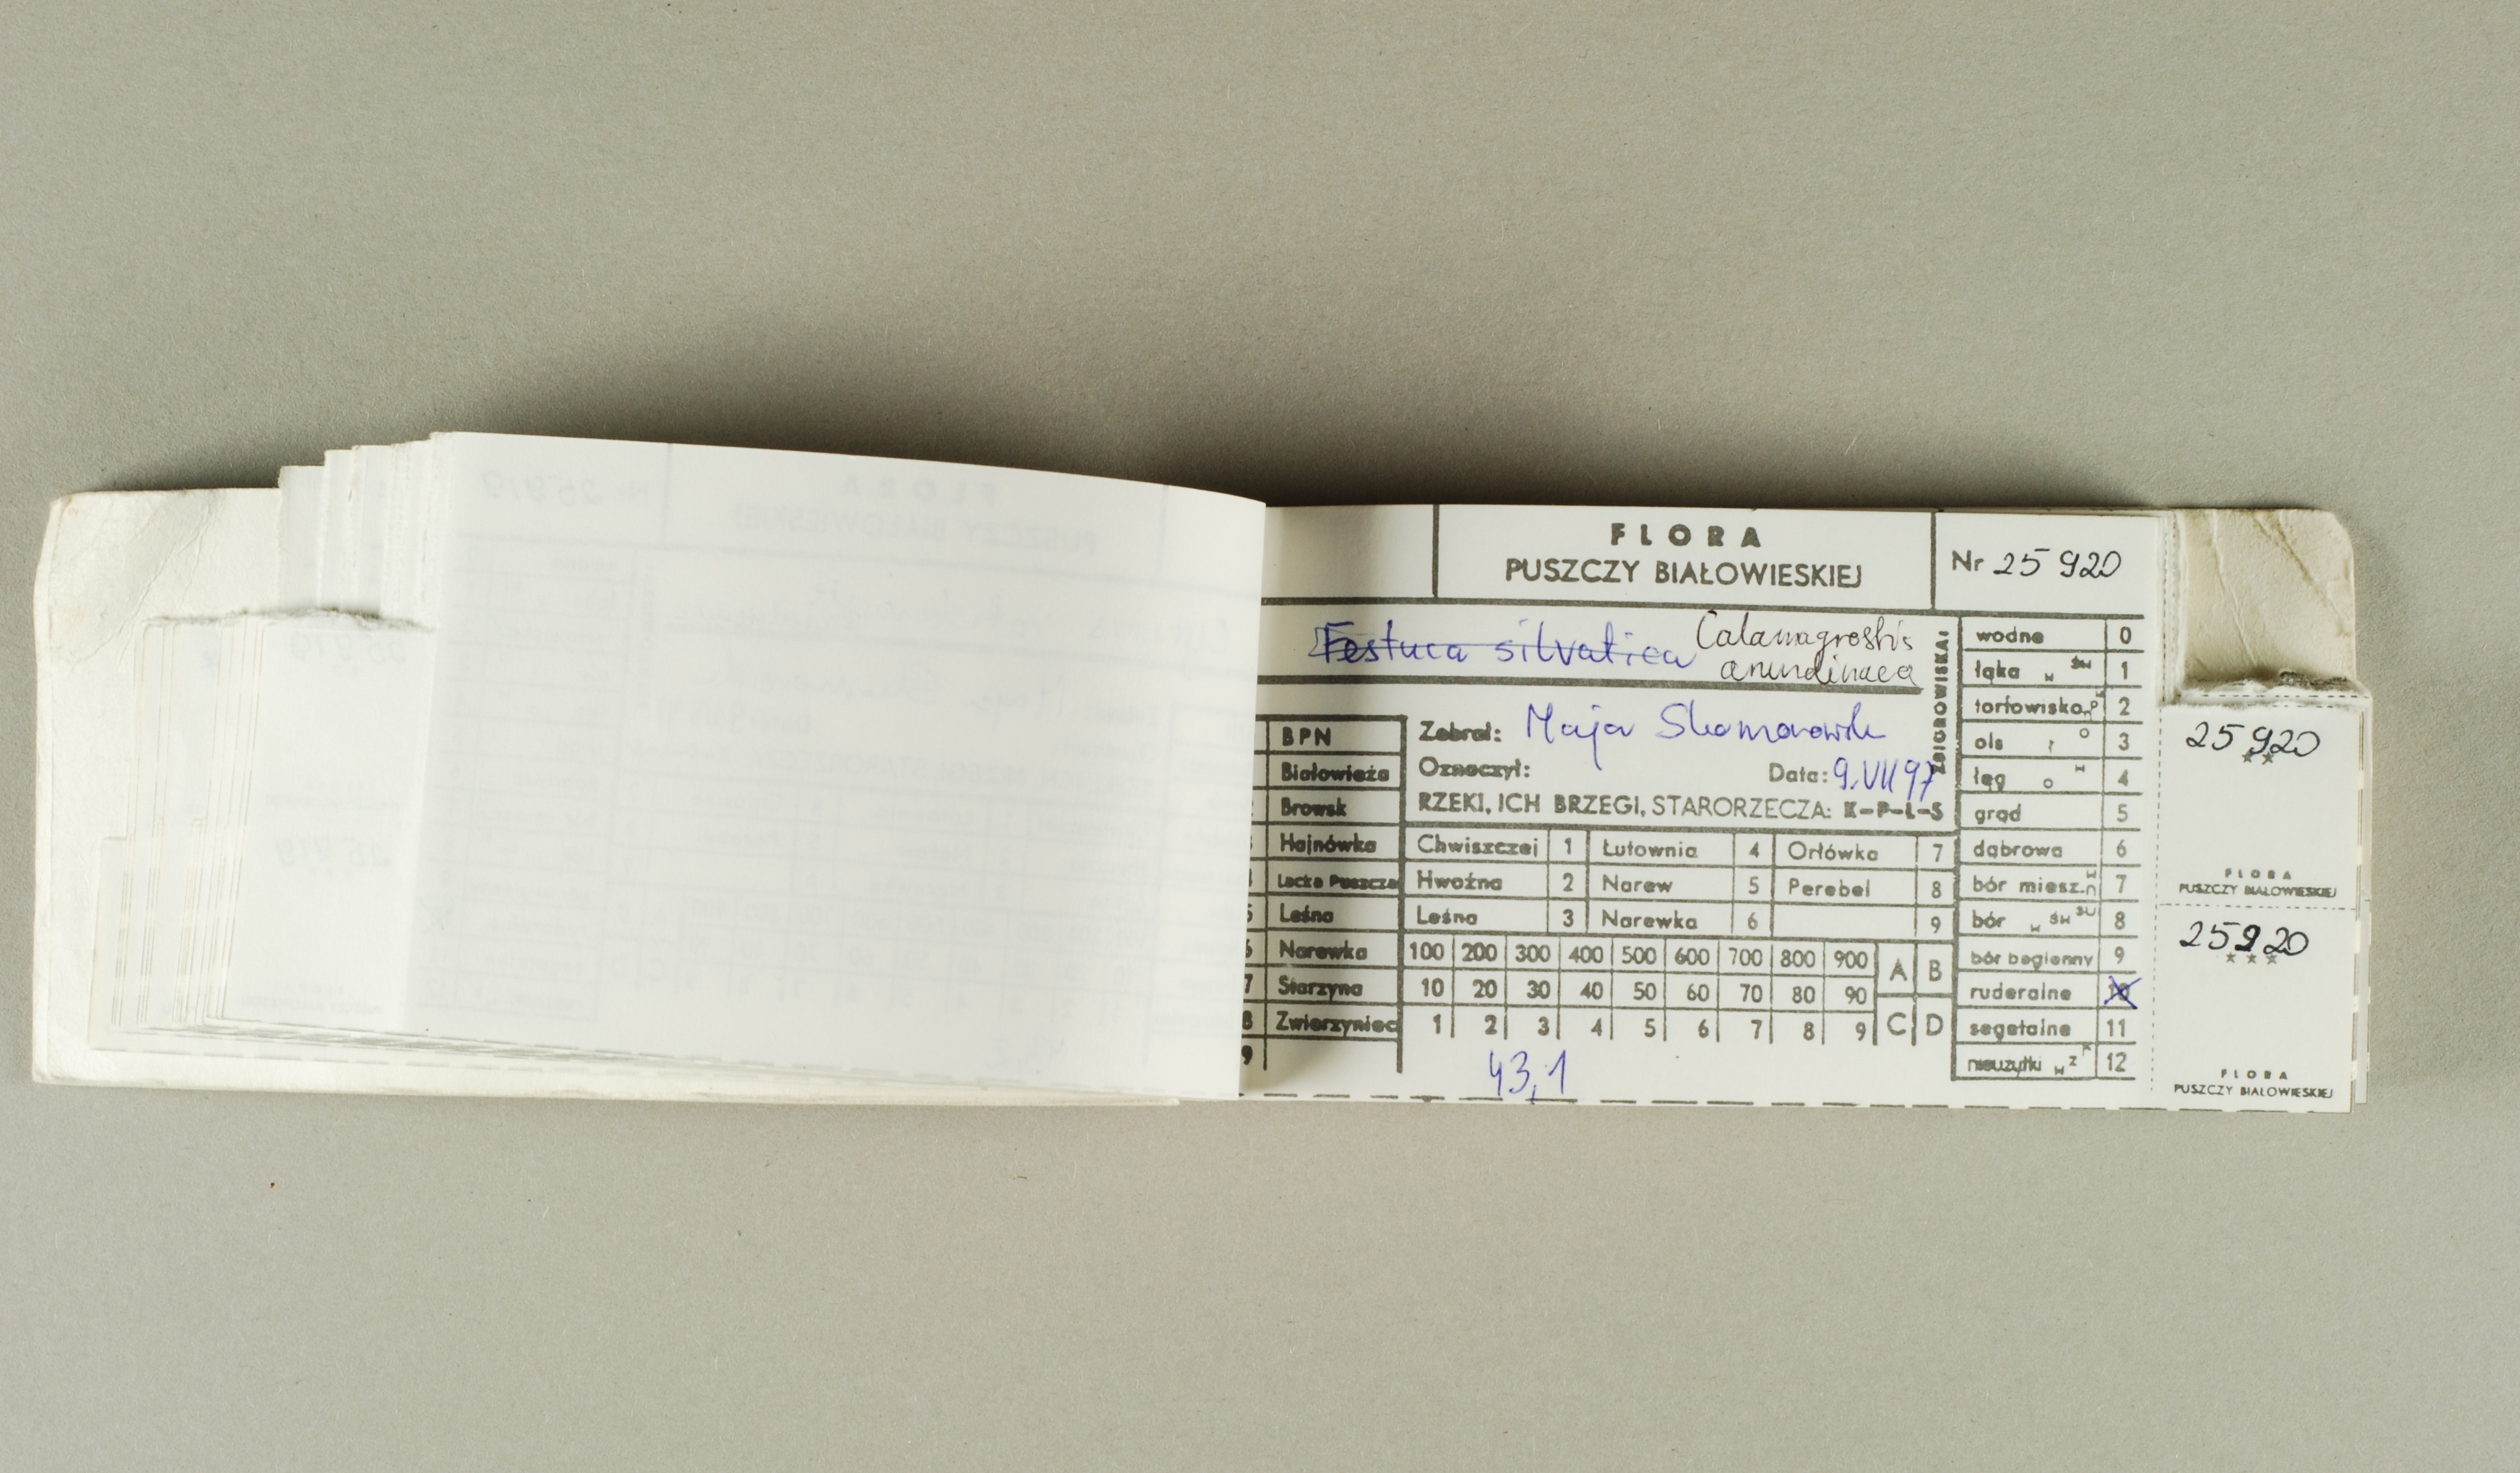 FLORA
PUSZCZY BIAŁOWIESKIEJ
Nr 25 920
Festuca silvatica Calamagrostis
arundinacea
BPN
Białowieża
Browsk
Hajnówka
Lacka Puszcza
5 Leśna
6 Narewka
7 Starzyna
8 Zwierzyniec
9
Zebrał: Maja
Oznaczył: Data: 9.VII 97
RZEKI, ICH BRZEGI, STARORZECZA: K-P-L-S
Chwiszczej 1 Łutownia 4 Orłówka 7
Hwoźna 2 Narew 5 Perebel 8
Leśna 3 Narewka 6 9
100 200 300 400 500 600 700 800 900 A B
10 20 30 40 50 60 70 80 90
1 2 3 4 5 6 7 8 9 C D
43,1
ZBIOROWISKA:
wodne 0
łąka w św 1
torfowisko 2
ols 3
łęg 4
grąd 5
dąbrowa 6
bór miesz. 7
bór w św su 8
bór bagienny 9
ruderalne 10
segetalne 11
nieużytki 12
25920
**
FLORA
PUSZCZY BIAŁOWIESKIEJ
25920
***
FLORA
PUSZCZY BIAŁOWIESKIEJ